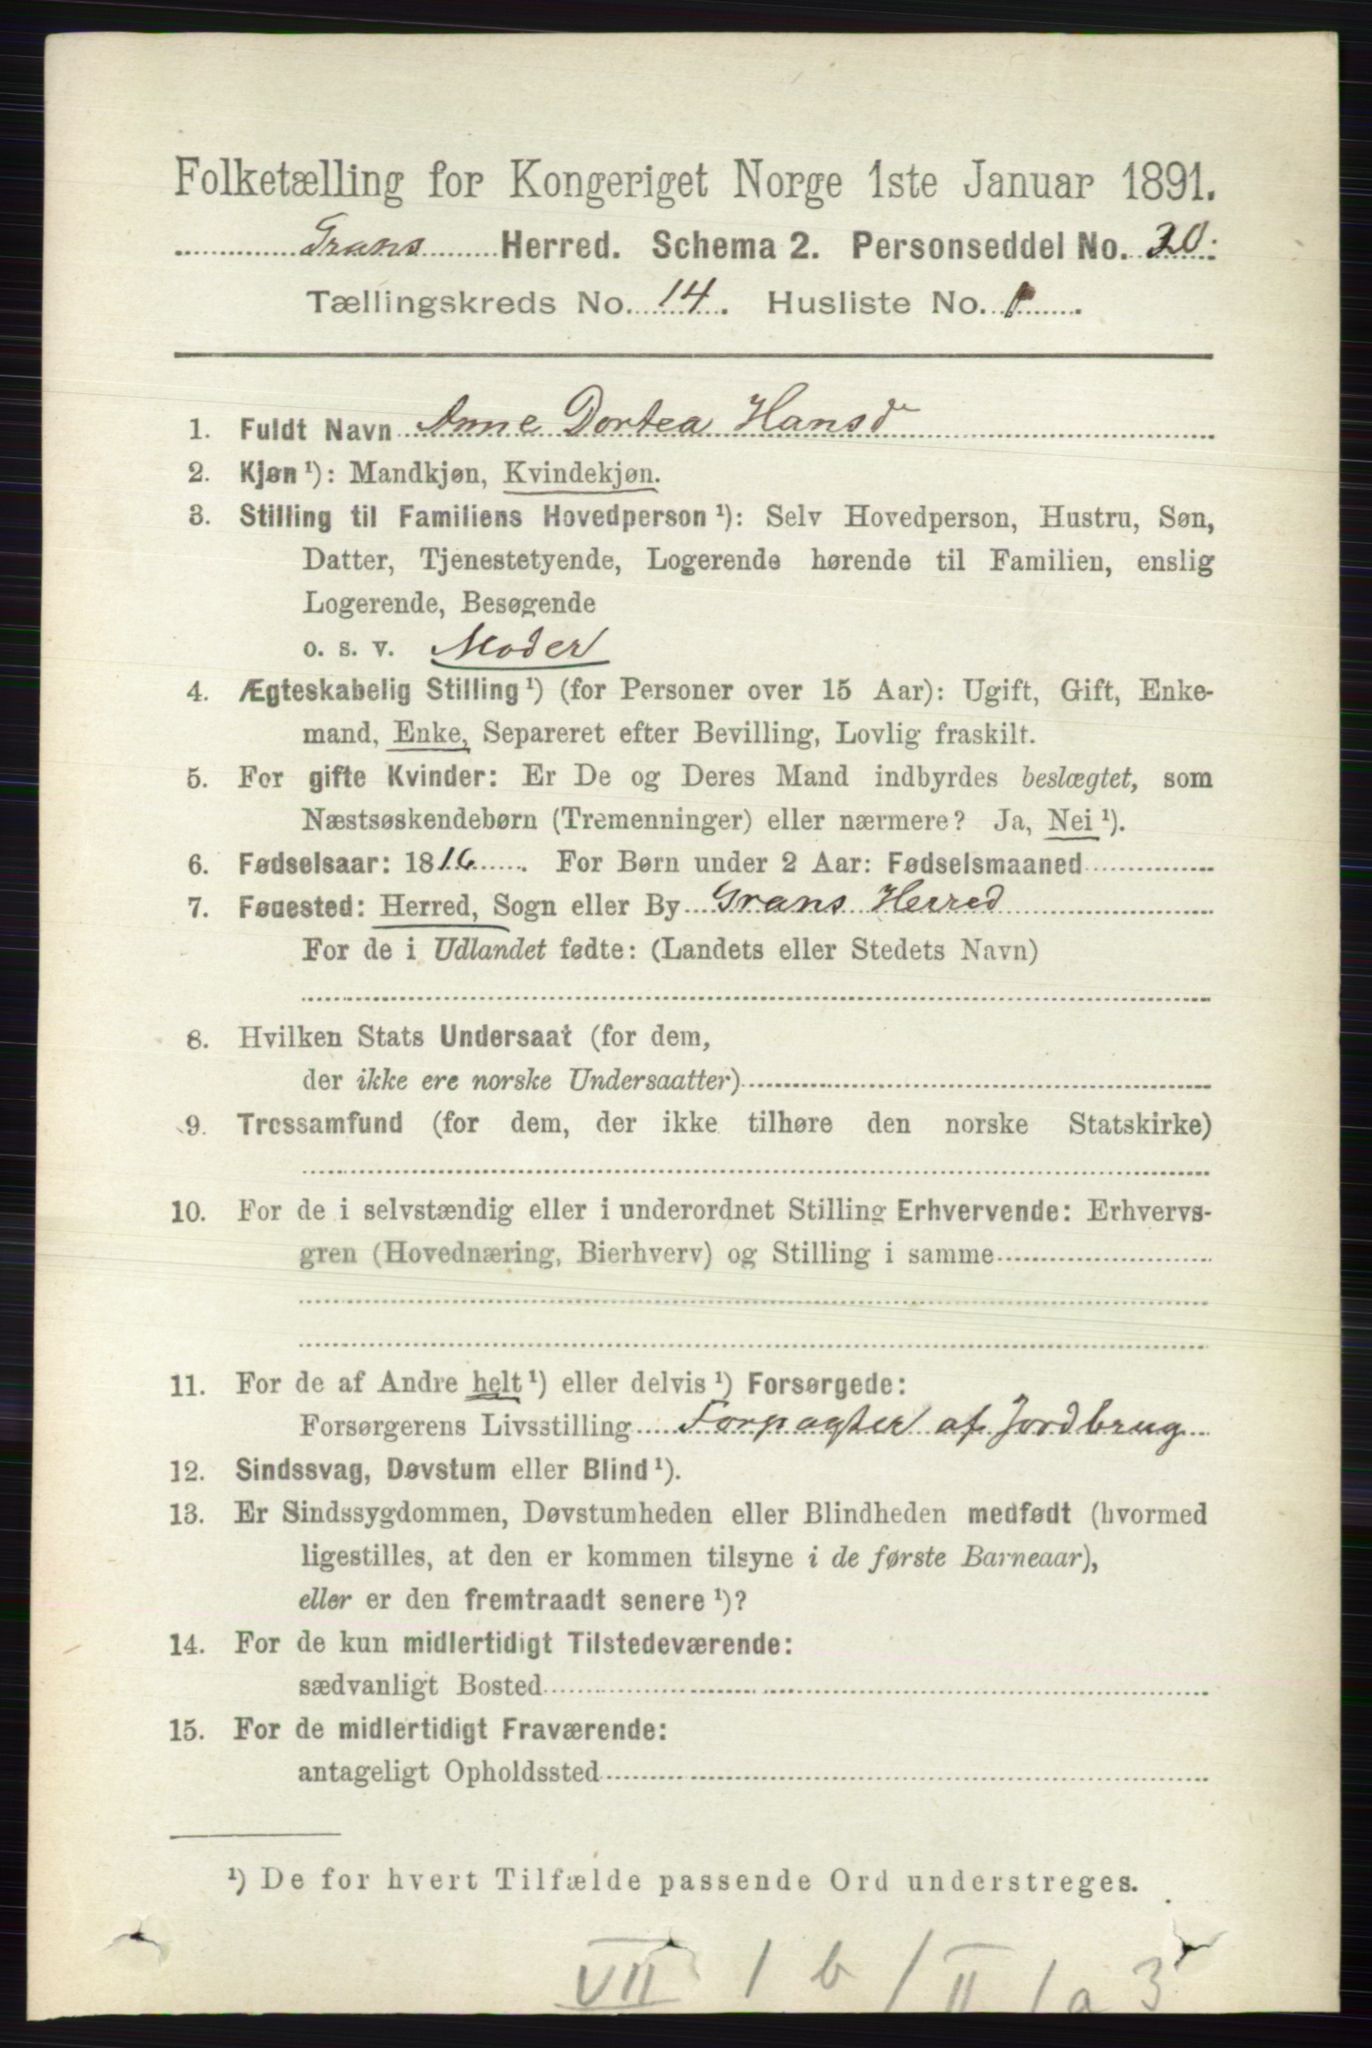 Folketælling for Kongeriget Norge 1ste Januar 1891.
Grans Herred. Schema 2. Personseddel No. 30.
Tællingskreds No. 14. Husliste No. 1.
1. Fuldt Navn Anne Dortea Hansd
2. Kjøn ¹): Mandkjøn, Kvindekjøn.
3. Stilling til Familiens Hovedperson ¹): Selv Hovedperson, Hustru, Søn,
Datter, Tjenestetyende, Logerende hørende til Familien, enslig
Logerende, Besøgende
o. s. v. Moder
4. Ægteskabelig Stilling ¹) (for Personer over 15 Aar): Ugift, Gift, Enke-
mand, Enke, Separeret efter Bevilling, Lovlig fraskilt.
5. For gifte Kvinder: Er De og Deres Mand indbyrdes beslægtet, som
Næstsøskendebørn (Tremenninger) eller nærmere? Ja, Nei ¹).
6. Fødselsaar: 1816. For Børn under 2 Aar: Fødselsmaaned
7. Fødested: Herred, Sogn eller By Grans Herred
For de i Udlandet fødte: (Landets eller Stedets Navn)
8. Hvilken Stats Undersaat (for dem,
der ikke ere norske Undersaatter)
9. Trossamfund (for dem, der ikke tilhøre den norske Statskirke)
10. For de i selvstændig eller i underordnet Stilling Erhvervende: Erhvervs-
gren (Hovednæring, Bierhverv) og Stilling i samme
11. For de af Andre helt ¹) eller delvis ¹) Forsørgede:
Forsørgerens Livsstilling Forpagter af Jordbrug
12. Sindssvag, Døvstum eller Blind ¹).
13. Er Sindssygdommen, Døvstumheden eller Blindheden medfødt (hvormed
ligestilles, at den er kommen tilsyne i de første Barneaar),
eller er den fremtraadt senere ¹)?
14. For de kun midlertidigt Tilstedeværende:
sædvanligt Bosted
15. For de midlertidigt Fraværende:
antageligt Opholdssted
¹) De for hvert Tilfælde passende Ord understreges.
VII 1 b / II 1a 3